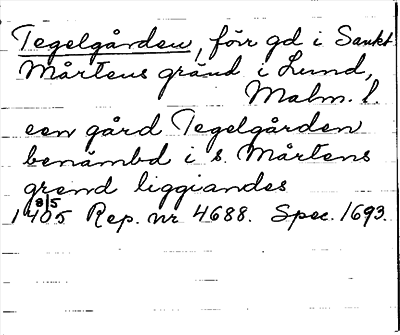 Tegelgården, förr gd i Sankt
Mårtens gränd i Lund,
Malm. l.
een gård Tegelgården
benämbd i s. Mårtens
grend liggiandes
1405 8/5 Rep. nr 4688. Spec. 1693.